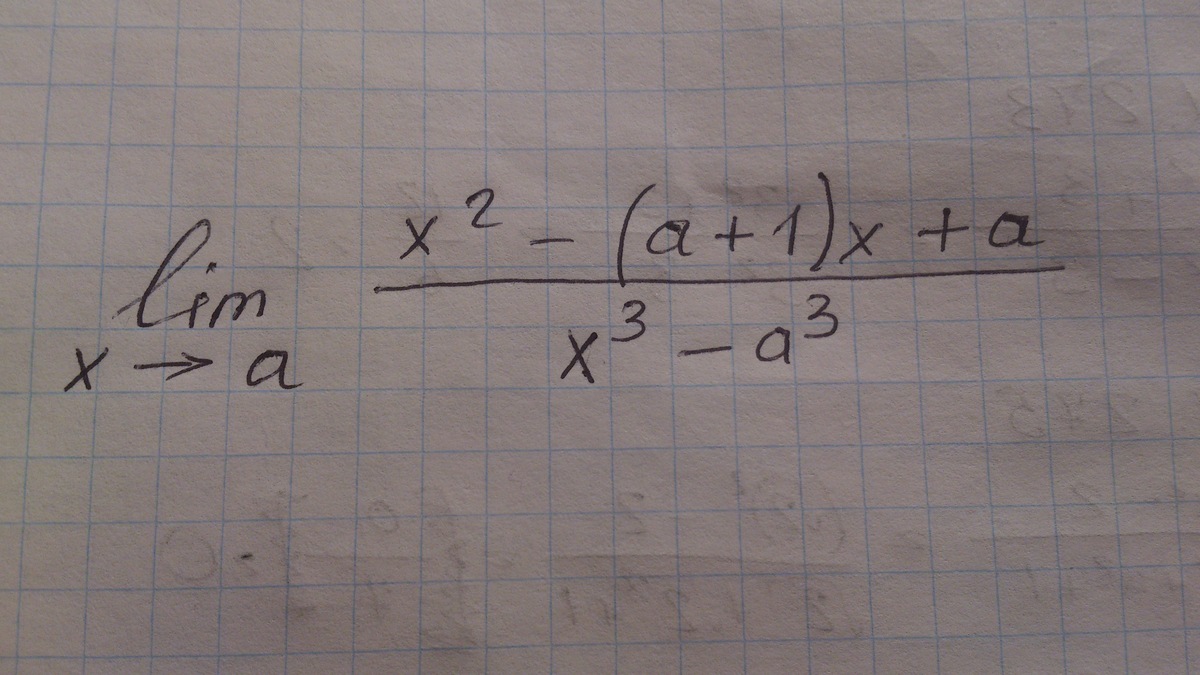 lim x → a x² - (a+1)x + a / x³ - a³